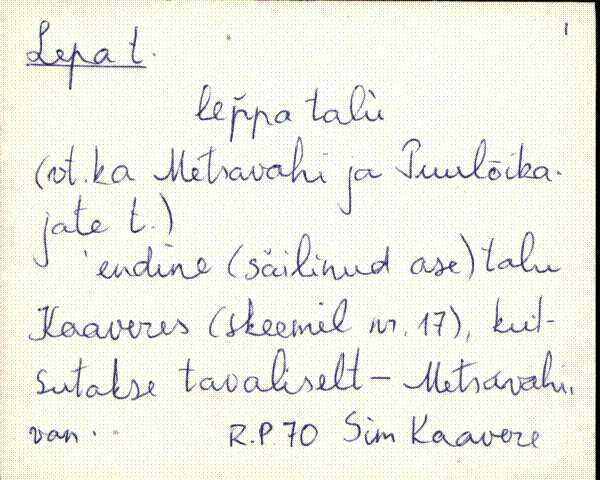 1
Lepa t.
lep̆pa talu̇
(vt. ka Metsavahi ja Puulõika-
jate t.)
'endine (säilinud ase) talu
Kaaveres (skeemil nr. 17), kut-
sutakse tavaliselt – Metsavahi,
van. R.P 70 Sim Kaavere